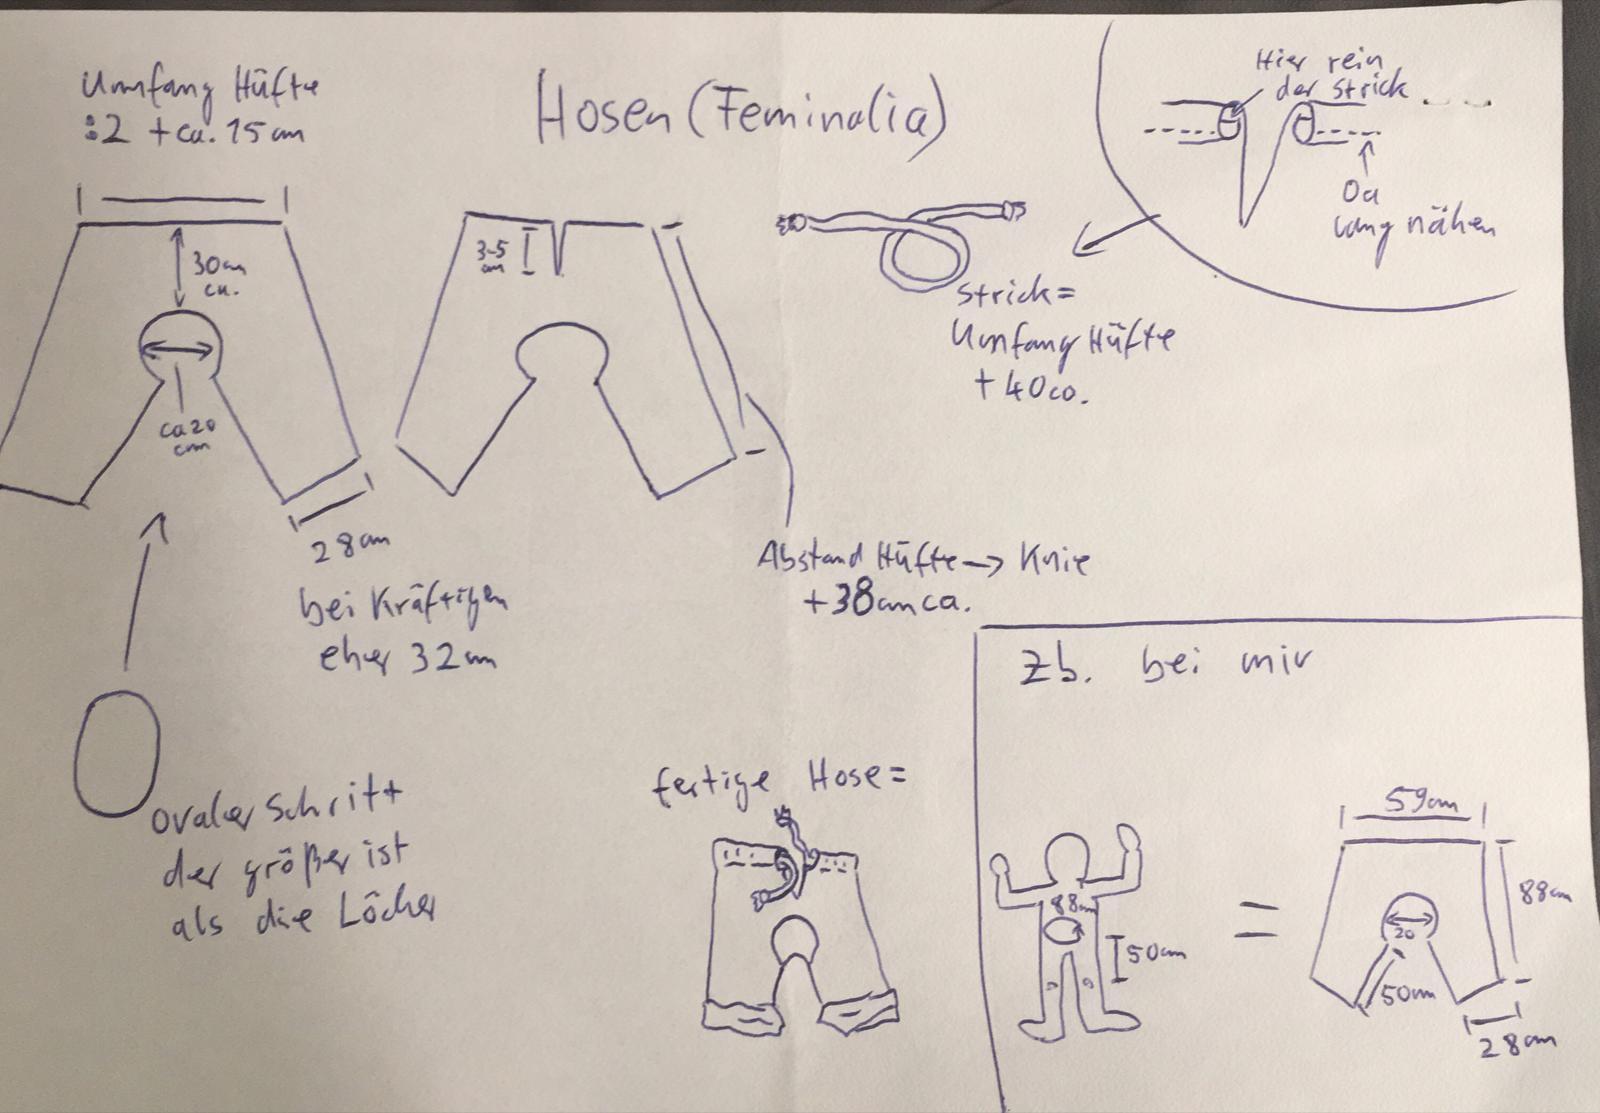 Umfang Hüfte
:2 + ca. 15cm
Hosen (Feminalia)
Hier rein
der Strick
Da
lang nähen
30cm
ca.
3-5
cm
ca 20
cm
Strick =
Umfang Hüfte
+ 40 co.
28cm
bei Kräftigen
eher 32cm
Abstand Hüfte → Knie
+38cm ca.
ovaler Schritt
der größer ist
als die Löcher
fertige Hose =
Zb. bei mir
88cm
50cm
=
59cm
88cm
20
50cm
28cm